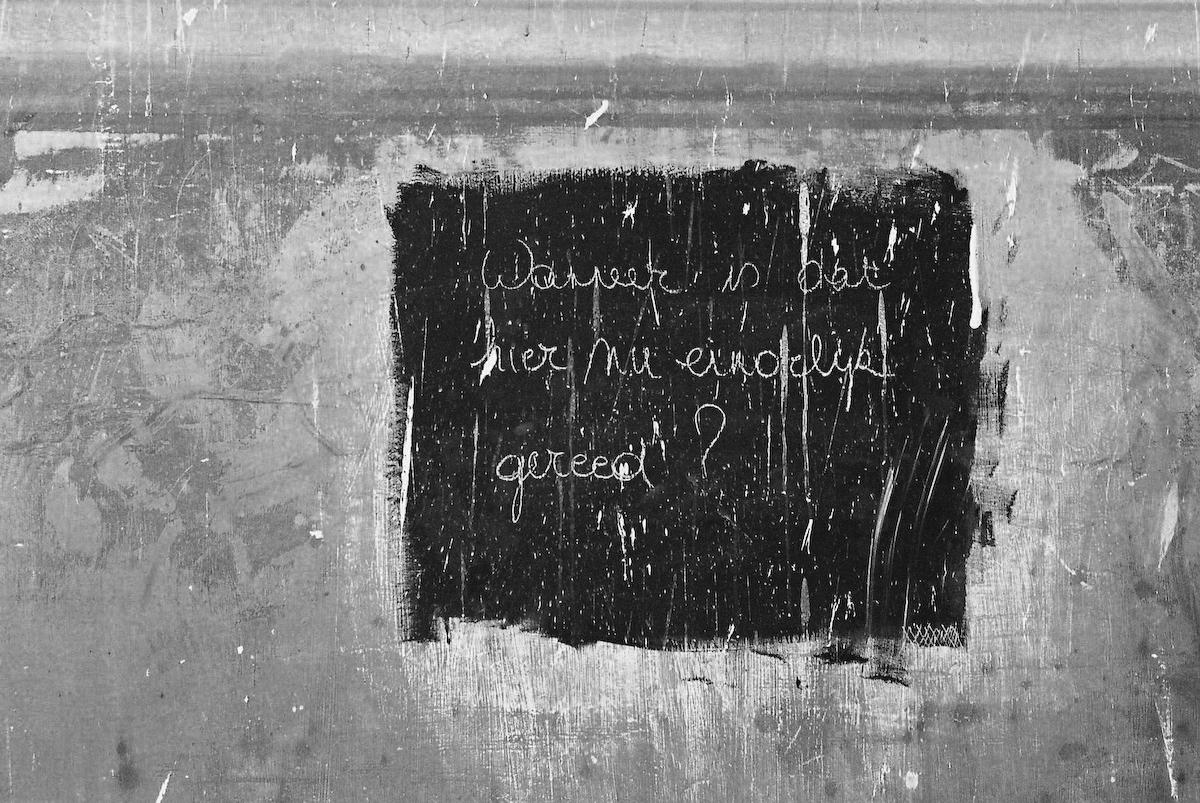 Wanneer is dat
hier nu eindelijk
gereed ?